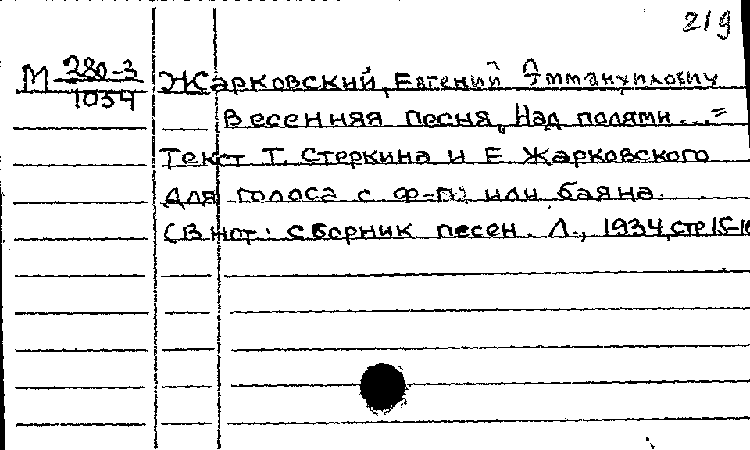 219
М 280-3/1054
Жарковский, Евгений Эммануилович
Весенняя песня „Над полями...=
Текст Т. Стеркина и Е Жарковского
Для голоса с ф-п. или баяна.
(В нот: сборник песен. Л., 1934, стр 15-16